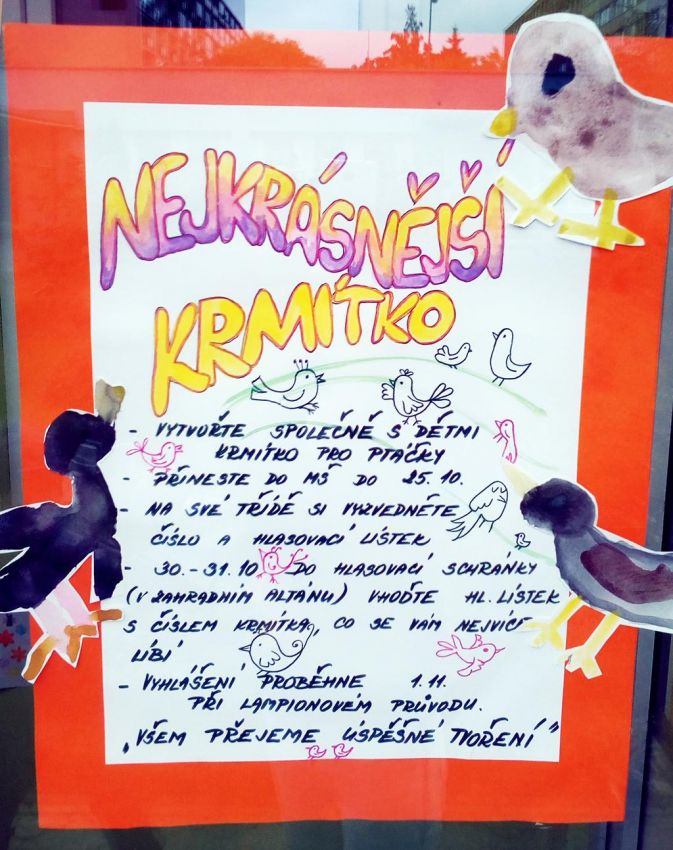 NEJKRÁSNĚJŠÍ
KRMÍTKO
- VYTVOŘTE SPOLEČNĚ S DĚTMI
KRMÍTKO PRO PTÁČKY
- PŘINESTE DO MŠ DO 25.10.
- NA SVÉ TŘÍDĚ SI VYZVEDNĚTE
ČÍSLO A HLASOVACÍ LÍSTEK
- 30.-31.10 DO HLASOVACÍ SCHRÁNKY
(V ZAHRADNÍM ALTÁNU) VHOĎTE HL. LÍSTEK
S ČÍSLEM KRMÍTKA, CO SE VÁM NEJVÍC
LÍBÍ
- VYHLÁŠENÍ PROBĚHNE 1.11.
PŘI LAMPIONOVÉM PRŮVODU.
„VŠEM PŘEJEME ÚSPĚŠNÉ TVOŘENÍ"